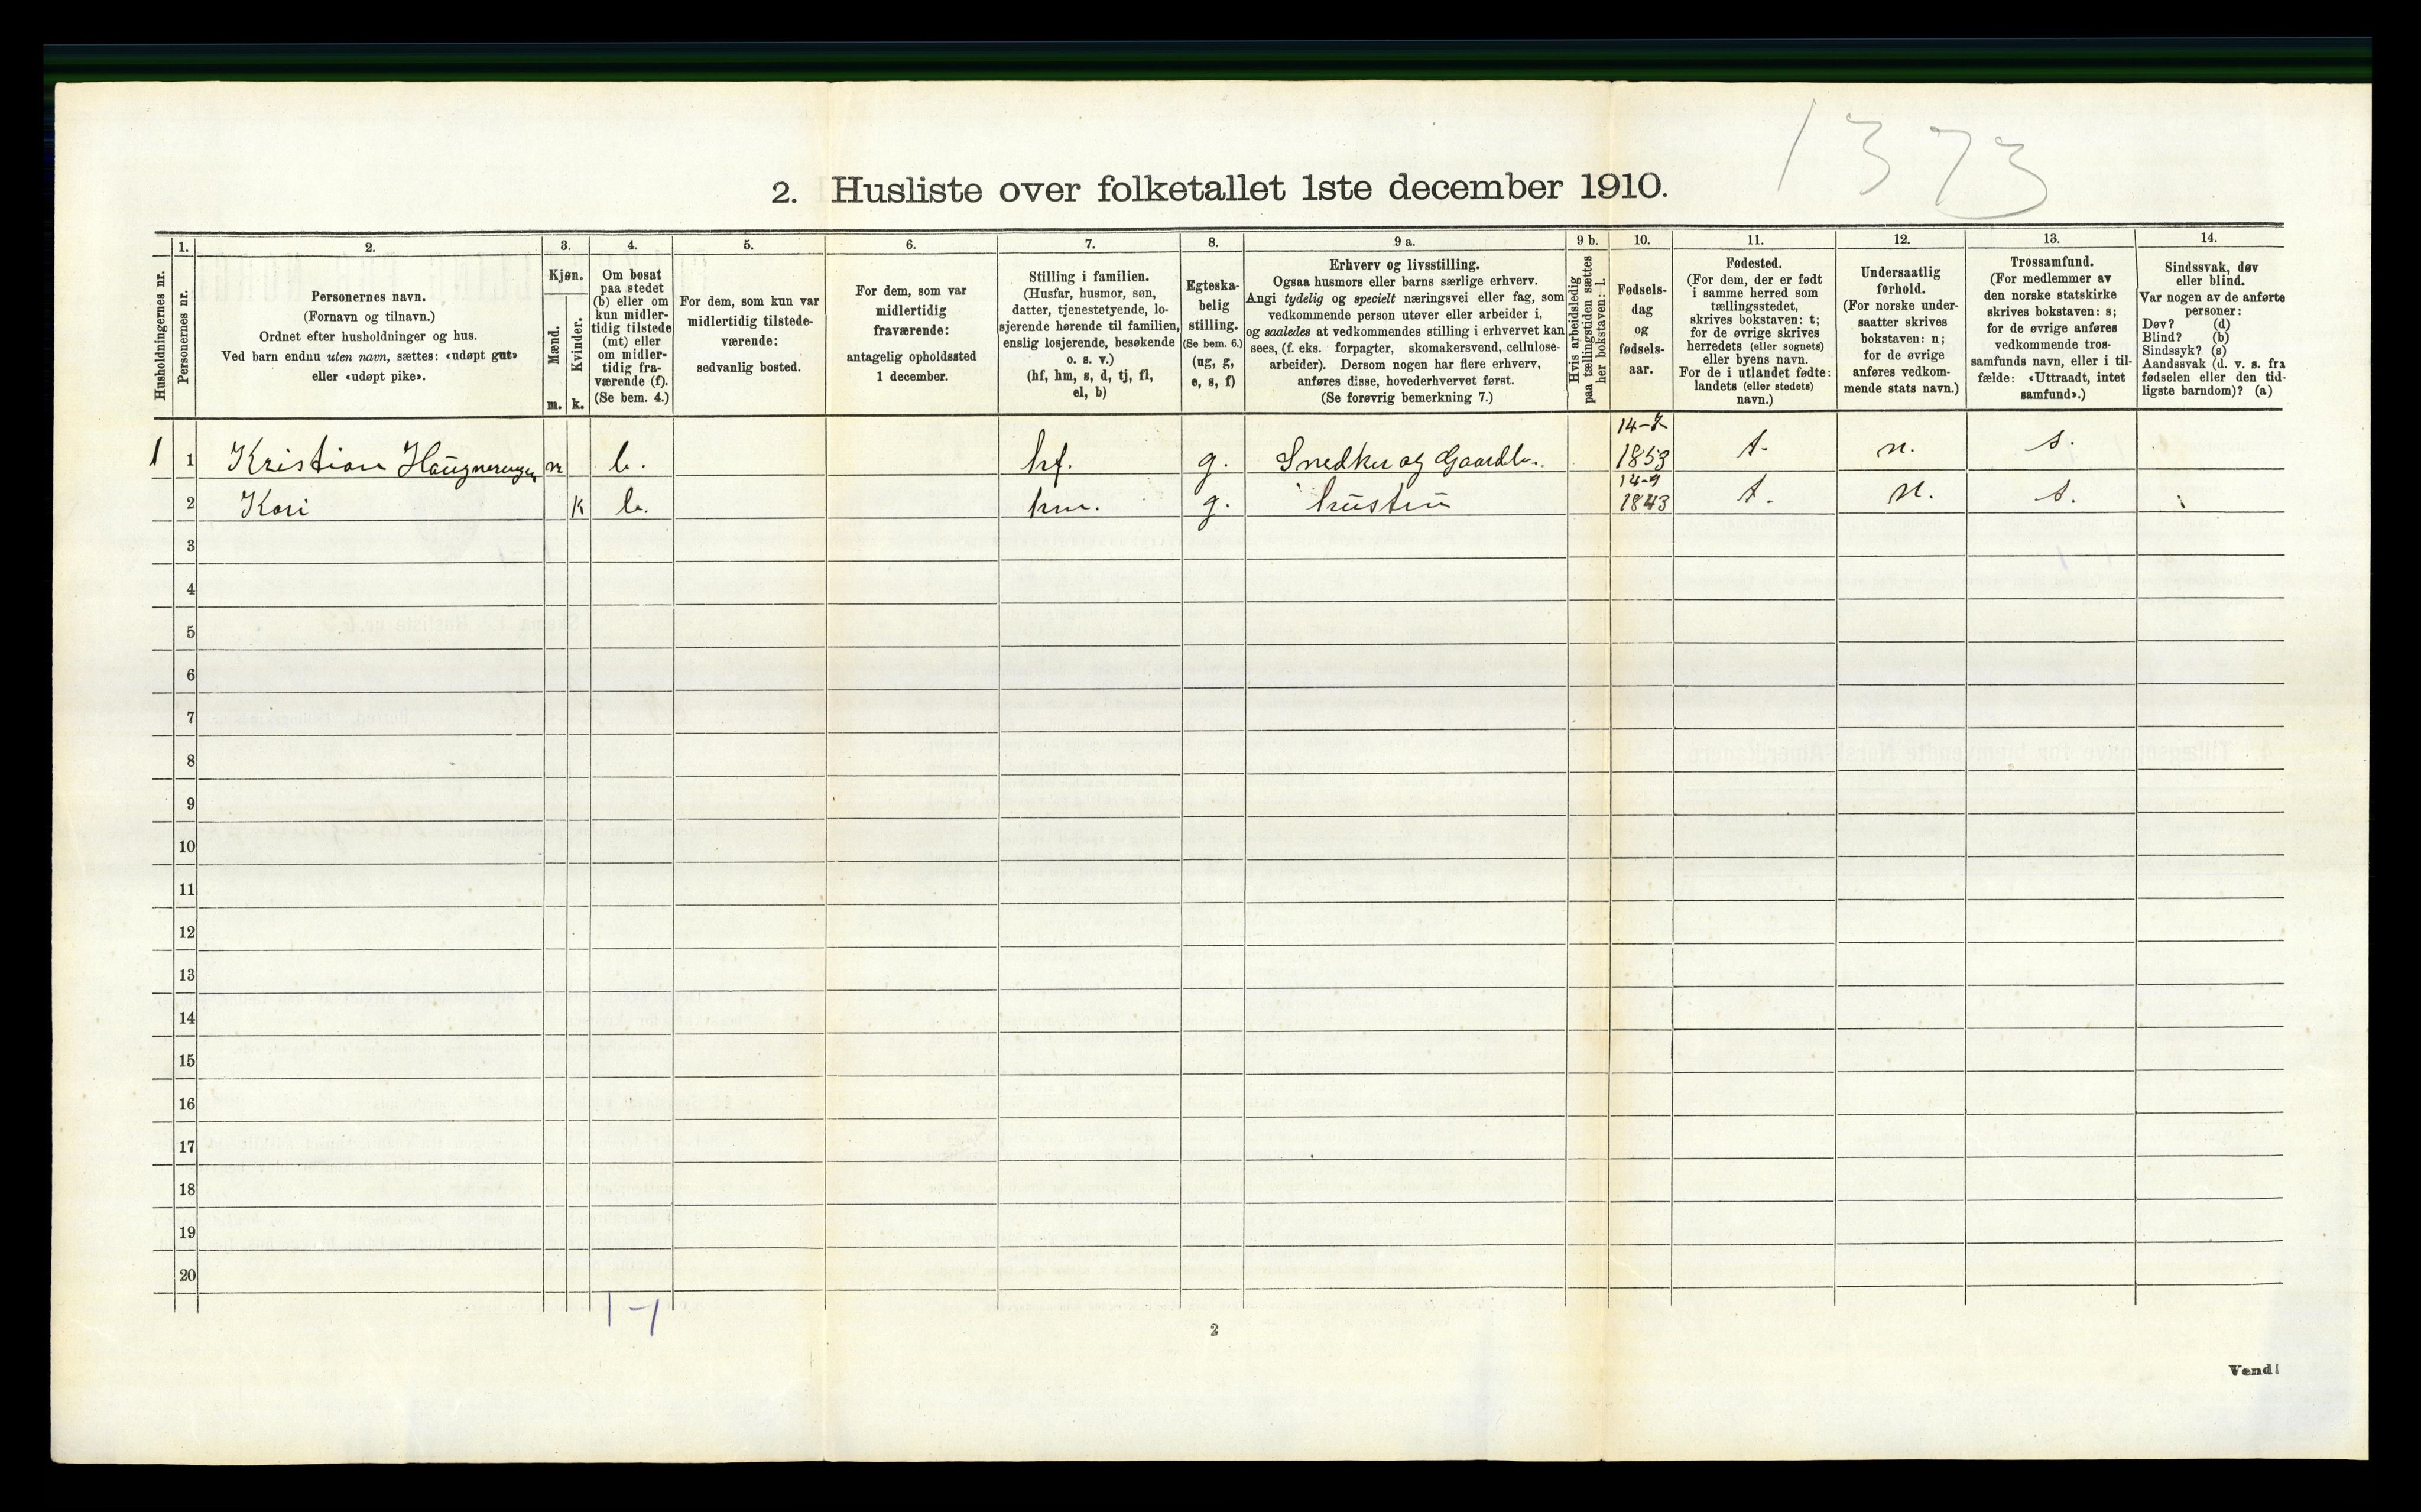 1373
2. Husliste over folketallet 1ste december 1910.
Husholdningernes nr.
1.
Personernes nr.
2.
Personernes navn.
(Fornavn og tilnavn.)
Ordnet efter husholdninger og hus.
Ved barn endnu uten navn, sættes: «udøpt gut»
eller «udøpt pike».
3.
Kjøn.
Mænd.
m.
Kvinder.
k.
4.
Om bosat
paa stedet
(b) eller om
kun midler-
tidig tilstede
(mt) eller
om midler-
tidig fra-
værende (f).
(Se bem. 4.)
5.
For dem, som kun var
midlertidig tilstede-
værende:
sedvanlig bosted.
6.
For dem, som var
midlertidig
fraværende:
antagelig opholdssted
1 december.
7.
Stilling i familien.
(Husfar, husmor, søn,
datter, tjenestetyende, lo-
sjerende hørende til familien,
enslig losjerende, besøkende
o. s. v.)
(hf, hm, s, d, tj, fl,
el, b)
8.
Egteska-
belig
stilling.
(Se bem. 6.)
(ug, g,
e, s, f)
9 a.
Erhverv og livsstilling.
Ogsaa husmors eller barns særlige erhverv.
Angi tydelig og specielt næringsvei eller fag, som
vedkommende person utøver eller arbeider i,
og saaledes at vedkommendes stilling i erhvervet kan
sees, (f. eks. forpagter, skomakersvend, cellulose-
arbeider). Dersom nogen har flere erhverv,
anføres disse, hovederhvervet først.
(Se forøvrig bemerkning 7.)
9 b.
Hvis arbeidsledig
paa tællingstiden sættes
her bokstaven: l.
10.
Fødsels-
dag
og
fødsels-
aar.
11.
Fødested.
(For dem, der er født
i samme herred som
tællingsstedet,
skrives bokstaven: t;
for de øvrige skrives
herredets (eller sognets)
eller byens navn.
For de i utlandet fødte:
landets (eller stedets)
navn.)
12.
Undersaatlig
forhold.
(For norske under-
saatter skrives
bokstaven: n;
for de øvrige
anføres vedkom-
mende stats navn.)
13.
Trossamfund.
(For medlemmer av
den norske statskirke
skrives bokstaven: s;
for de øvrige anføres
vedkommende tros-
samfunds navn, eller i til-
fælde: «Uttraadt, intet
samfund».)
14.
Sindssvak, døv
eller blind.
Var nogen av de anførte
personer:
Døv? (d)
Blind? (b)
Sindssyk? (s)
Aandssvak (d. v. s. fra
fødselen eller den tid-
ligste barndom)? (a)
1 1 Kristian m b. hf. g. Snedker og Gaardbr. 14-7 1853 t. n. s.
2 Kari k b. hm. g. hustru 14-9 1843 t. n. s.
3
4
5
6
7
8
9
10
11
12
13
14
15
16
17
18
19
20
1-1
2
Vend!